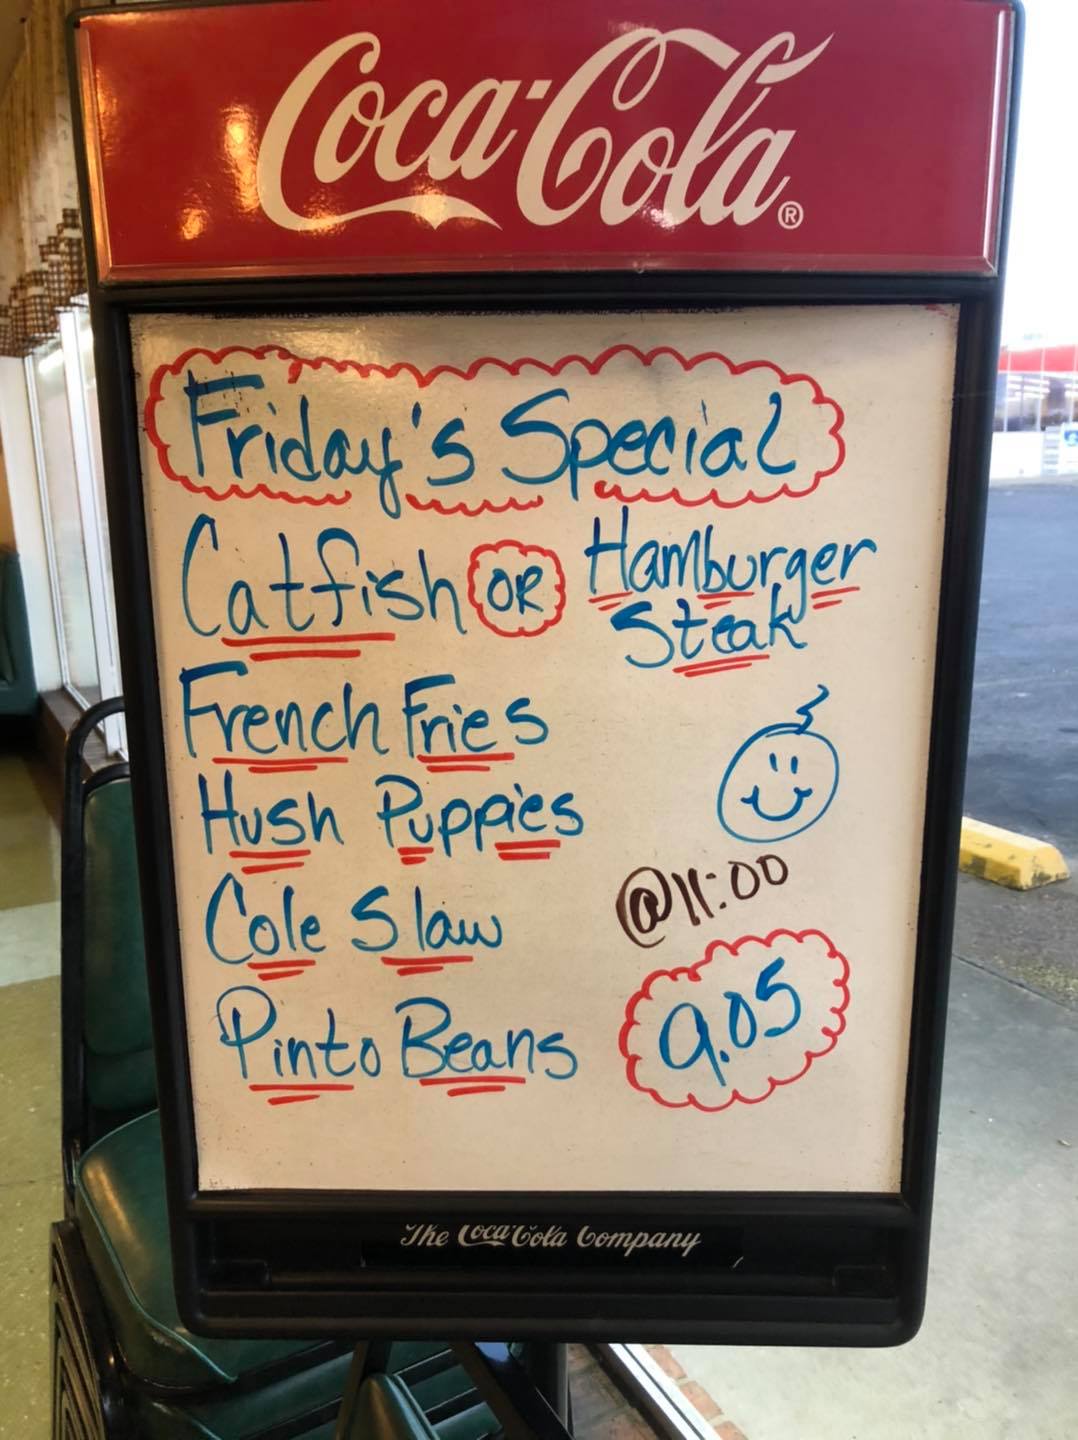 Coca-Cola®
Friday's Special
Catfish OR Hamburger
Steak
French Fries
Hush Puppies
Cole Slaw
@11:00
Pinto Beans
9.05
The Coca-Cola Company